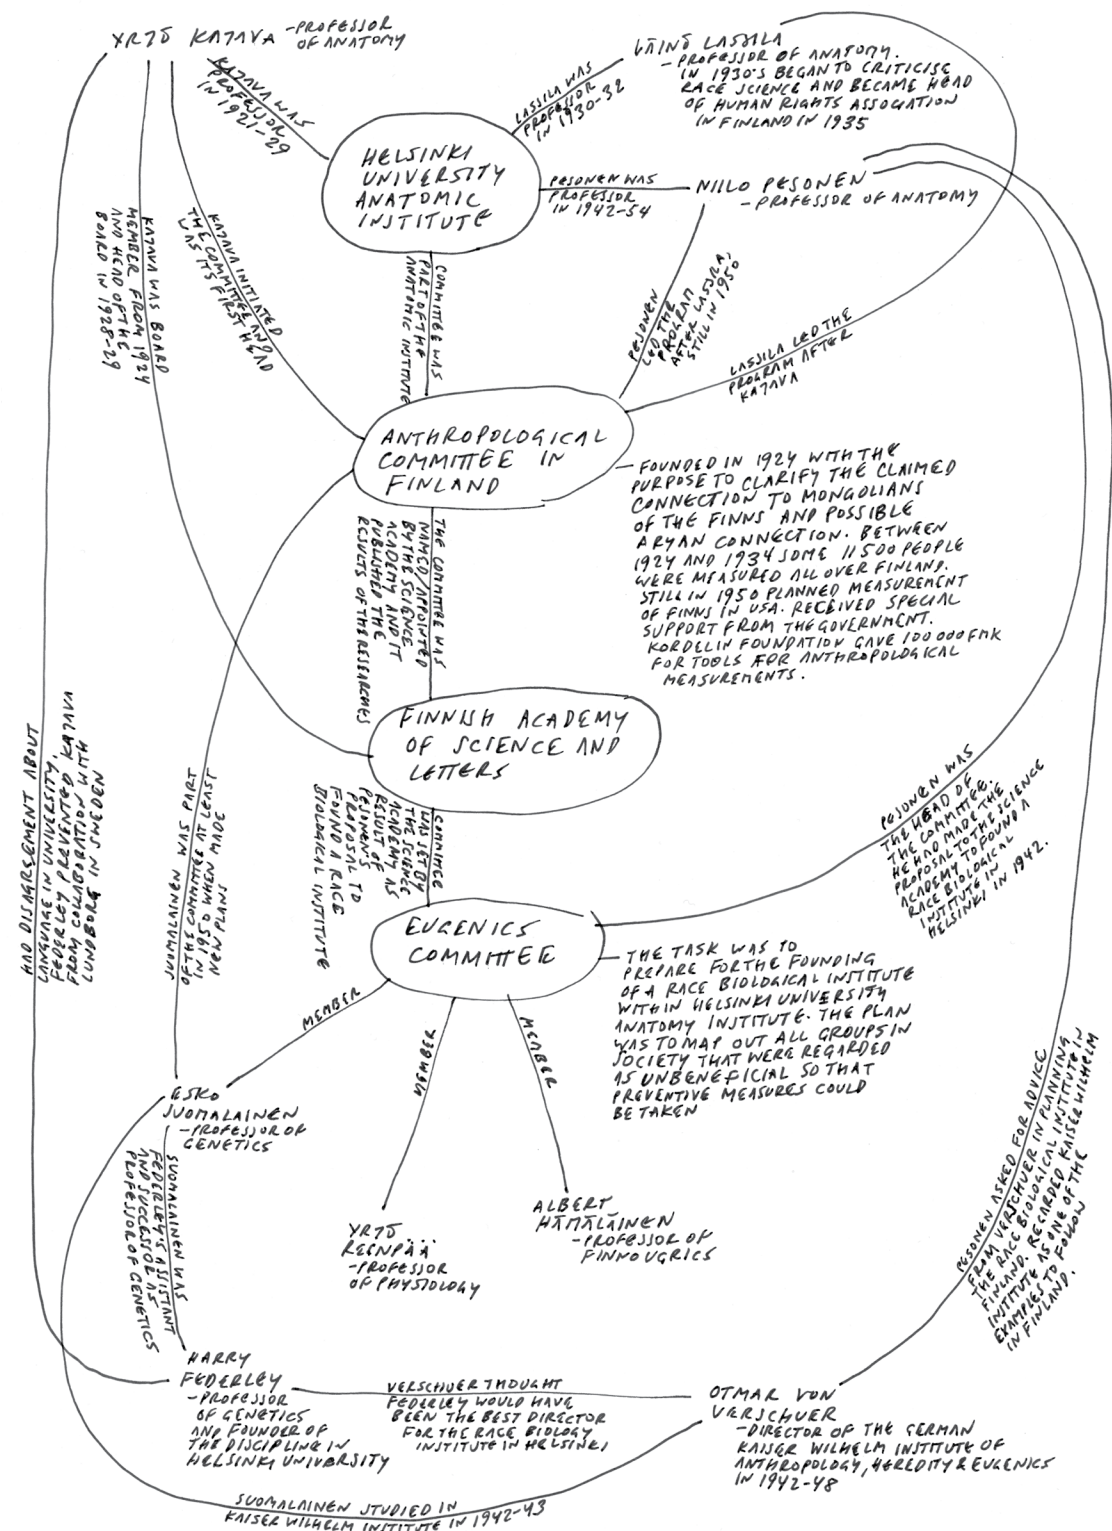 YRJÖ KAJAVA
-PROFESSOR
OF ANATOMY
KAJAVA WAS
PROFESSOR
IN 1921-29
LASSILA WAS
PROFESSOR
IN 1930-32
VÄINÖ LASSILA
-PROFESSOR OF ANATOMY.
IN 1930'S BEGAN TO CRITICISE
RACE SCIENCE AND BECAME HEAD
OF HUMAN RIGHTS ASSOCIATION
IN FINLAND IN 1935
HELSINKI
UNIVERSITY
ANATOMIC
INSTITUTE
PESONEN WAS
PROFESSOR
IN 1942-54
NIILO PESONEN
-PROFESSOR OF ANATOMY
KAJAVA WAS BOARD
MEMBER FROM 1924
AND HEAD OF THE
BOARD IN 1928-29
KAJAVA INITIATED
THE COMMITTEE AND
WAS ITS FIRST HEAD
COMMITTEE WAS
PART OF THE
ANATOMIC INSTITUTE
PESONEN
LED THE
PROGRAM
AFTER LASSILA,
STILL IN 1950
LASSILA LED THE
PROGRAM AFTER
KAJAVA
ANTHROPOLOGICAL
COMMITTEE IN
FINLAND
-FOUNDED IN 1924 WITH THE
PURPOSE TO CLARIFY THE CLAIMED
CONNECTION TO MONGOLIANS
OF THE FINNS AND POSSIBLE
ARYAN CONNECTION. BETWEEN
1924 AND 1934 SOME 11500 PEOPLE
WERE MEASURED ALL OVER FINLAND.
STILL IN 1950 PLANNED MEASUREMENT
OF FINNS IN USA. RECEIVED SPECIAL
SUPPORT FROM THE GOVERNMENT.
KORDELIN FOUNDATION GAVE 100 000 FMK
FOR TOOLS FOR ANTHROPOLOGICAL
MEASUREMENTS.
THE COMMITTEE WAS
NAMED/APPOINTED
BY THE SCIENCE
ACADEMY AND IT
PUBLISHED THE
RESULTS OF THE RESEARCHES
FINNISH ACADEMY
OF SCIENCE AND
LETTERS
HAD DISAGREEMENT ABOUT
LANGUAGE IN UNIVERSITY,
FEDERLEY PREVENTED KAJAVA
FROM COLLABORATION WITH
LUNDBORG IN SWEDEN
SUOMALAINEN WAS PART
OF THE COMMITTEE AT LEAST
IN 1950 WHEN MADE
NEW PLANS
COMMITTEE
WAS SET BY
THE SCIENCE
ACADEMY AS
RESULT OF
PESONEN'S
PROPOSAL TO
FOUND A RACE
BIOLOGICAL INSTITUTE
PESONEN WAS
THE HEAD OF
THE COMMITTEE.
HE HAD MADE THE
PROPOSAL TO THE SCIENCE
ACADEMY TO FOUND A
RACE BIOLOGICAL
INSTITUTE IN
HELSINKI IN 1942.
EUGENICS
COMMITTEE
-THE TASK WAS TO
PREPARE FOR THE FOUNDING
OF A RACE BIOLOGICAL INSTITUTE
WITHIN HELSINKI UNIVERSITY
ANATOMY INSTITUTE. THE PLAN
WAS TO MAP OUT ALL GROUPS IN
SOCIETY THAT WERE REGARDED
AS UNBENEFICIAL SO THAT
PREVENTIVE MEASURES COULD
BE TAKEN
MEMBER
MEMBER
MEMBER
ESKO
SUOMALAINEN
-PROFESSOR OF
GENETICS
SUOMALAINEN WAS
FEDERLEY'S ASSISTANT
AND SUCCESSOR AS
PROFESSOR OF GENETICS
YRJÖ
REENPÄÄ
-PROFESSOR
OF PHYSIOLOGY
ALBERT
HÄMÄLÄINEN
-PROFESSOR OF
FINNOUGRICS
PESONEN ASKED FOR ADVICE
FROM VERSCHUER IN PLANNING
THE RACE BIOLOGICAL INSTITUTE IN
FINLAND. REGARDED KAISER WILHELM
INSTITUTE AS ONE OF THE
EXAMPLES TO FOLLOW
IN FINLAND.
HARRY
FEDERLEY
-PROFESSOR
OF GENETICS
AND FOUNDER OF
THE DISCIPLINE IN
HELSINKI UNIVERSITY
VERSCHUER THOUGHT
FEDERLEY WOULD HAVE
BEEN THE BEST DIRECTOR
FOR THE RACE BIOLOGY
INSTITUTE IN HELSINKI
OTMAR VON
VERSCHUER
-DIRECTOR OF THE GERMAN
KAISER WILHELM INSTITUTE OF
ANTHROPOLOGY, HEREDITY & EUGENICS
IN 1942-48
SUOMALAINEN STUDIED IN
KAISER WILHELM INSTITUTE IN 1942-43